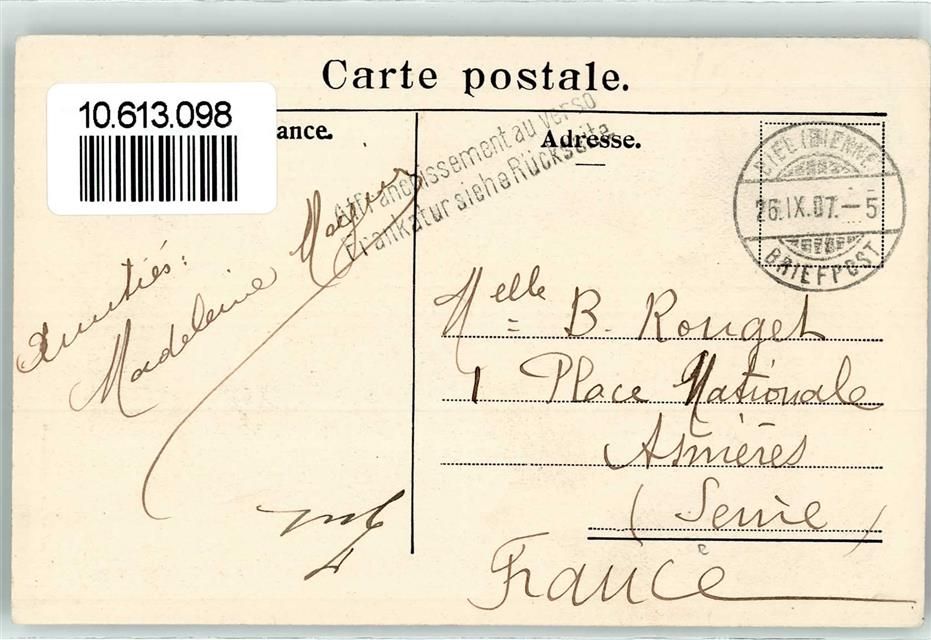 Carte postale.
10.613.098
ance.
Adresse.
Affranchissement au verso
Frankatur siehe Rückseite
BIEL (BIENNE)
26.IX.07.–5
BRIEFPOST
Amitiés:
Madeleine
Melle B. Rouget
1 Place Nationale
Asnières
(Seine)
France